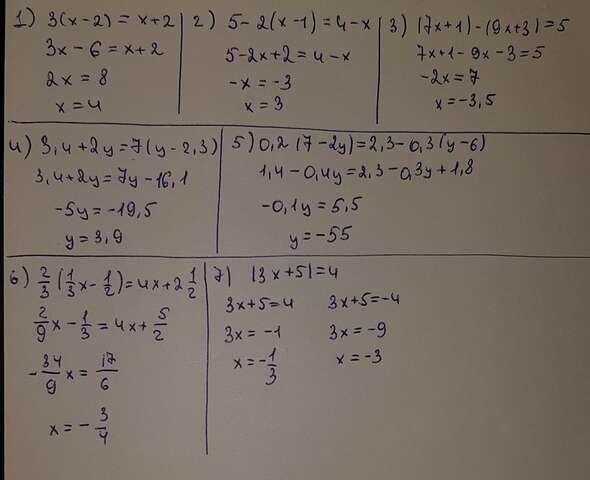 1) 3(x-2) = x+2
3x - 6 = x+2
2x = 8
x = 4
2) 5-2(x-1)=4-x
5-2x+2=4-x
-x=-3
x=3
3) (7x+1)-(9x+3)=5
7x+1-9x-3=5
-2x=7
x=-3,5
4) 3,4+2y=7(y-2,3)
3,4+2y=7y-16,1
-5y=-19,5
y=3,9
5) 0,2(7-2y)=2,3-0,3(y-6)
1,4-0,4y=2,3-0,3y+1,8
-0,1y=5,5
y=-55
6) 2/3(1/3x-1/2)=4x+2 1/2
2/9x-1/3=4x+5/2
-34/9x=17/6
x=-3/4
7) |3x+5|=4
3x+5=4 3x+5=-4
3x=-1 3x=-9
x=-1/3 x=-3